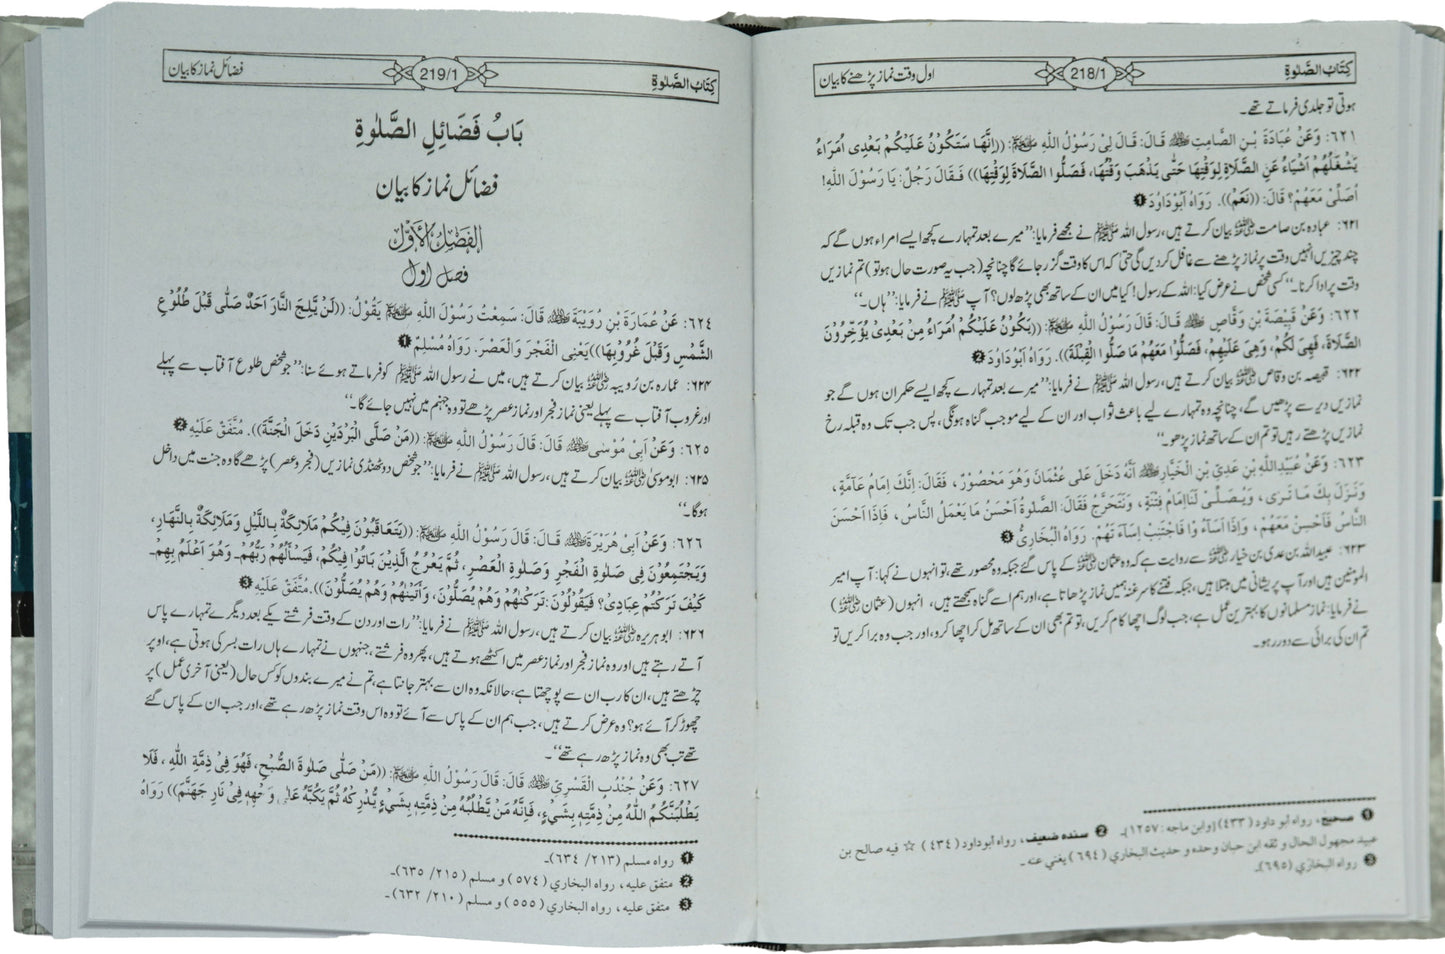 كِتَابُ الصَّلٰوةِ
218/1
اول وقت نماز پڑھنے کا بیان
ہوتی تو جلدی فرماتے تھے۔
٦٢١: وَعَنْ عُبَادَةَ بْنِ الصَّامِتِ ﷺ قَالَ: قَالَ لِیْ رَسُوْلُ اللهِ ﷺ: ((اِنَّهَا سَتَكُوْنُ عَلَيْكُمْ بَعْدِی اُمَرَاءُ
يَشْغَلُهُمْ اَشْيَاءُ عَنِ الصَّلَاةِ لِوَقْتِهَا حَتّٰی يَذْهَبَ وَقْتُهَا، فَصَلُّوا الصَّلَاةَ لِوَقْتِهَا)) فَقَالَ رَجُلٌ: يَا رَسُوْلَ اللهِ!
اُصَلِّیْ مَعَهُمْ؟ قَالَ: ((نَعَمْ)). رَوَاهُ اَبُوْدَاوٗدَ ❶
۶۲۱: عبادہ بن صامت رضی اللہ عنہ بیان کرتے ہیں، رسول اللہ ﷺ نے مجھے فرمایا: ’’میرے بعد تمہارے کچھ ایسے امراء ہوں گے کہ
چند چیزیں انہیں وقت پر نماز پڑھنے سے غافل کردیں گی حتیٰ کہ اس کا وقت گزر جائے گا چنانچہ (جب یہ صورت حال ہو تو) تم نمازیں
وقت پر ادا کرنا۔‘‘ کسی شخص نے عرض کیا: اللہ کے رسول! کیا میں ان کے ساتھ بھی پڑھ لوں؟ آپ ﷺ نے فرمایا: ’’ہاں۔‘‘
٦٢٢: وَعَنْ قَبِيْصَةَ بْنِ وَقَّاصٍ قَالَ: قَالَ رَسُوْلُ اللهِ ﷺ: ((يَكُوْنُ عَلَيْكُمْ اُمَرَاءُ مِنْ بَعْدِیْ يُؤَخِّرُوْنَ
الصَّلَاةَ، فَهِیَ لَكُمْ، وَهِیَ عَلَيْهِمْ، فَصَلُّوْا مَعَهُمْ مَا صَلُّوا الْقِبْلَةَ)). رَوَاهُ اَبُوْدَاوٗدَ ❷
۶۲۲: قبیصہ بن وقاص رضی اللہ عنہ بیان کرتے ہیں، رسول اللہ ﷺ نے فرمایا: ’’میرے بعد تمہارے کچھ ایسے حکمران ہوں گے جو
نمازیں دیر سے پڑھیں گے، چنانچہ وہ تمہارے لیے باعث ثواب اور ان کے لیے موجب گناہ ہوگی، پس جب تک وہ قبلہ رخ
نمازیں پڑھتے رہیں تو تم ان کے ساتھ نماز پڑھو۔‘‘
٦٢٣: وَعَنْ عُبَيْدِاللهِ بْنِ عَدِیِّ بْنِ الْخَيَارِ اَنَّهُ دَخَلَ عَلٰی عُثْمَانَ وَهُوَ مَحْصُوْرٌ، فَقَالَ: اِنَّكَ اِمَامُ عَامَّةٍ،
وَنَزَلَ بِكَ مَا نَرٰی، وَيُصَلِّیْ لَنَا اِمَامُ فِتْنَةٍ، وَنَتَحَرَّجُ فَقَالَ: الصَّلٰوةُ اَحْسَنُ مَا يَعْمَلُ النَّاسُ، فَاِذَا اَحْسَنَ
النَّاسُ فَاَحْسِنْ مَعَهُمْ، وَاِذَا اَسَآءُ وْا فَاجْتَنِبْ اِسَآءَ تَهُمْ. رَوَاهُ الْبُخَارِیُّ ❸
۶۲۳: عبیداللہ بن عدی بن خیار رضی اللہ عنہ سے روایت ہے کہ وہ عثمان رضی اللہ عنہ کے پاس گئے جبکہ وہ محصور تھے، تو انہوں نے کہا: آپ امیر
المومنین ہیں اور آپ پریشانی میں مبتلا ہیں، جبکہ فتنے کا سرغنہ ہمیں نماز پڑھاتا ہے، اور ہم اسے گناہ سمجھتے ہیں، انہوں (عثمان رضی اللہ عنہ)
نے فرمایا: نماز مسلمانوں کا بہترین عمل ہے، جب لوگ اچھا کام کریں، تو تم بھی ان کے ساتھ مل کر اچھا کرو، اور جب وہ برا کریں تو
تم ان کی برائی سے دور رہو۔
❶ صحیح، رواه أبو داود (٤٣٣) [وابن ماجه: ١٢٥٧]۔ ❷ سنده ضعیف، رواه أبوداود (٤٣٤) ☆ فیه صالح بن
عبید مجهول الحال و ثقه ابن حبان وحده و حدیث البخاری (٦٩٤) یغنی عنه۔
❸ رواه البخاری (٦٩٥)۔
كِتَابُ الصَّلٰوةِ
219/1
فضائل نماز کا بیان
بَابُ فَضَائِلِ الصَّلٰوةِ
فضائل نماز کا بیان
الفَصْلُ الأَوَّلُ
فصل اول
٦٢٤: عَنْ عُمَارَةَ بْنِ رُوَيْبَةَ قَالَ: سَمِعْتُ رَسُوْلَ اللهِ ﷺ يَقُوْلُ: ((لَنْ يَّلِجَ النَّارَ اَحَدٌ صَلّٰی قَبْلَ طُلُوْعِ
الشَّمْسِ وَقَبْلَ غُرُوْبِهَا)) يَعْنِی الْفَجْرَ وَالْعَصْرَ. رَوَاهُ مُسْلِمٌ ❶
۶۲۴: عمارہ بن رویبہ رضی اللہ عنہ بیان کرتے ہیں، میں نے رسول اللہ ﷺ کو فرماتے ہوئے سنا: ’’جو شخص طلوع آفتاب سے پہلے
اور غروب آفتاب سے پہلے یعنی نماز فجر اور نماز عصر پڑھے تو وہ جہنم میں نہیں جائے گا۔‘‘
٦٢٥: وَعَنْ اَبِیْ مُوْسٰی قَالَ: قَالَ رَسُوْلُ اللهِ ﷺ: ((مَنْ صَلَّی الْبَرْدَيْنِ دَخَلَ الْجَنَّةَ)). مُتَّفَقٌ عَلَيْهِ ❷
۶۲۵: ابوموسیٰ رضی اللہ عنہ بیان کرتے ہیں، رسول اللہ ﷺ نے فرمایا: ’’جو شخص دو ٹھنڈی نمازیں (فجر و عصر) پڑھے گا وہ جنت میں داخل
ہوگا۔‘‘
٦٢٦: وَعَنْ اَبِیْ هُرَيْرَةَ قَالَ: قَالَ رَسُوْلُ اللهِ ﷺ: ((يَتَعَاقَبُوْنَ فِيْكُمْ مَلَائِكَةٌ بِاللَّيْلِ وَمَلَائِكَةٌ بِالنَّهَارِ،
وَيَجْتَمِعُوْنَ فِی صَلٰوةِ الْفَجْرِ وَصَلٰوةِ الْعَصْرِ، ثُمَّ يَعْرُجُ الَّذِيْنَ بَاتُوْا فِيْكُمْ، فَيَسْأَلُهُمْ رَبُّهُمْ۔ وَهُوَ اَعْلَمُ بِهِمْ۔
كَيْفَ تَرَكْتُمْ عِبَادِیْ؟ فَيَقُوْلُوْنَ: تَرَكْنٰهُمْ وَهُمْ يُصَلُّوْنَ، وَاَتَيْنٰهُمْ وَهُمْ يُصَلُّوْنَ)). مُتَّفَقٌ عَلَيْهِ ❸
۶۲۶: ابوہریرہ رضی اللہ عنہ بیان کرتے ہیں، رسول اللہ ﷺ نے فرمایا: ’’رات اور دن کے وقت فرشتے یکے بعد دیگرے تمہارے پاس
آتے رہتے ہیں اور وہ نماز فجر اور نماز عصر میں اکٹھے ہوتے ہیں، پھر وہ فرشتے، جنہوں نے تمہارے ہاں رات بسر کی ہوتی ہے، اوپر
چڑھتے ہیں، ان کا رب ان سے پوچھتا ہے، حالانکہ وہ ان سے بہتر جانتا ہے، تم نے میرے بندوں کو کس حال (یعنی آخری عمل) پر
چھوڑ کر آئے ہو؟ وہ عرض کرتے ہیں، جب ہم ان کے پاس سے آئے تو وہ اس وقت نماز پڑھ رہے تھے، اور جب ان کے پاس گئے
تھے تب بھی وہ نماز پڑھ رہے تھے‘‘۔
٦٢٧: وَعَنْ جُنْدُبِ الْقَسْرِیِّ قَالَ: قَالَ رَسُوْلُ اللهِ ﷺ: ((مَنْ صَلّٰی صَلٰوةَ الصُّبْحِ، فَهُوَ فِیْ ذِمَّةِ اللهِ، فَلَا
يَطْلُبَنَّكُمُ اللهُ مِنْ ذِمَّتِهٖ بِشَیْءٍ، فَاِنَّهُ مَنْ يَّطْلُبْهُ مِنْ ذِمَّتِهٖ بِشَیْءٍ يُّدْرِكْهُ ثُمَّ يَكُبُّهُ عَلٰی وَجْهِهٖ فِیْ نَارِ جَهَنَّمَ)) رَوَاهُ
❶ رواه مسلم (٢١٣/ ٦٣٤)۔
❷ متفق علیه، رواه البخاري (٥٧٤) و مسلم (٢١٥/ ٦٣٥)۔
❸ متفق علیه، رواه البخاري (٥٥٥) و مسلم (٢١٠/ ٦٣٢)۔